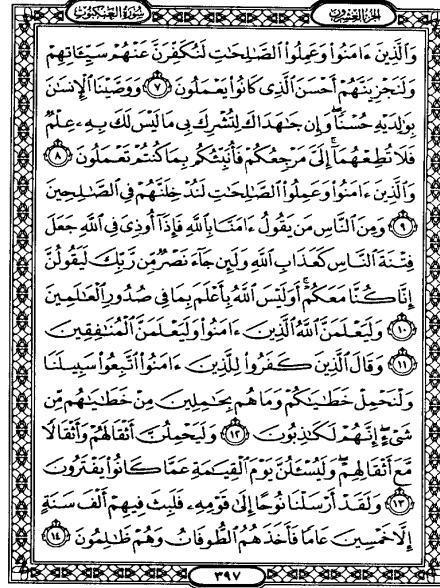 سورة العنكبوت
الجزء العشرون
وَٱلَّذِينَ ءَامَنُوا۟ وَعَمِلُوا۟ ٱلصَّـٰلِحَـٰتِ لَنُكَفِّرَنَّ عَنْهُمْ سَيِّـَٔاتِهِمْ
وَلَنَجْزِيَنَّهُمْ أَحْسَنَ ٱلَّذِى كَانُوا۟ يَعْمَلُونَ ٧ وَوَصَّيْنَا ٱلْإِنسَـٰنَ
بِوَٰلِدَيْهِ حُسْنًا وَإِن جَـٰهَدَاكَ لِتُشْرِكَ بِى مَا لَيْسَ لَكَ بِهِۦ عِلْمٌ
فَلَا تُطِعْهُمَآ إِلَىَّ مَرْجِعُكُمْ فَأُنَبِّئُكُم بِمَا كُنتُمْ تَعْمَلُونَ ٨
وَٱلَّذِينَ ءَامَنُوا۟ وَعَمِلُوا۟ ٱلصَّـٰلِحَـٰتِ لَنُدْخِلَنَّهُمْ فِى ٱلصَّـٰلِحِينَ
٩ وَمِنَ ٱلنَّاسِ مَن يَقُولُ ءَامَنَّا بِٱللَّهِ فَإِذَآ أُوذِىَ فِى ٱللَّهِ جَعَلَ
فِتْنَةَ ٱلنَّاسِ كَعَذَابِ ٱللَّهِ وَلَئِن جَآءَ نَصْرٌ مِّن رَّبِّكَ لَيَقُولُنَّ
إِنَّا كُنَّا مَعَكُمْ أَوَلَيْسَ ٱللَّهُ بِأَعْلَمَ بِمَا فِى صُدُورِ ٱلْعَـٰلَمِينَ
١٠ وَلَيَعْلَمَنَّ ٱللَّهُ ٱلَّذِينَ ءَامَنُوا۟ وَلَيَعْلَمَنَّ ٱلْمُنَـٰفِقِينَ
١١ وَقَالَ ٱلَّذِينَ كَفَرُوا۟ لِلَّذِينَ ءَامَنُوا۟ ٱتَّبِعُوا۟ سَبِيلَنَا
وَلْنَحْمِلْ خَطَـٰيَـٰكُمْ وَمَا هُم بِحَـٰمِلِينَ مِنْ خَطَـٰيَـٰهُم مِّن
شَىْءٍ إِنَّهُمْ لَكَـٰذِبُونَ ١٢ وَلَيَحْمِلُنَّ أَثْقَالَهُمْ وَأَثْقَالًا
مَّعَ أَثْقَالِهِمْ وَلَيُسْـَٔلُنَّ يَوْمَ ٱلْقِيَـٰمَةِ عَمَّا كَانُوا۟ يَفْتَرُونَ
١٣ وَلَقَدْ أَرْسَلْنَا نُوحًا إِلَىٰ قَوْمِهِۦ فَلَبِثَ فِيهِمْ أَلْفَ سَنَةٍ
إِلَّا خَمْسِينَ عَامًا فَأَخَذَهُمُ ٱلطُّوفَانُ وَهُمْ ظَـٰلِمُونَ ١٤
٣٩٧